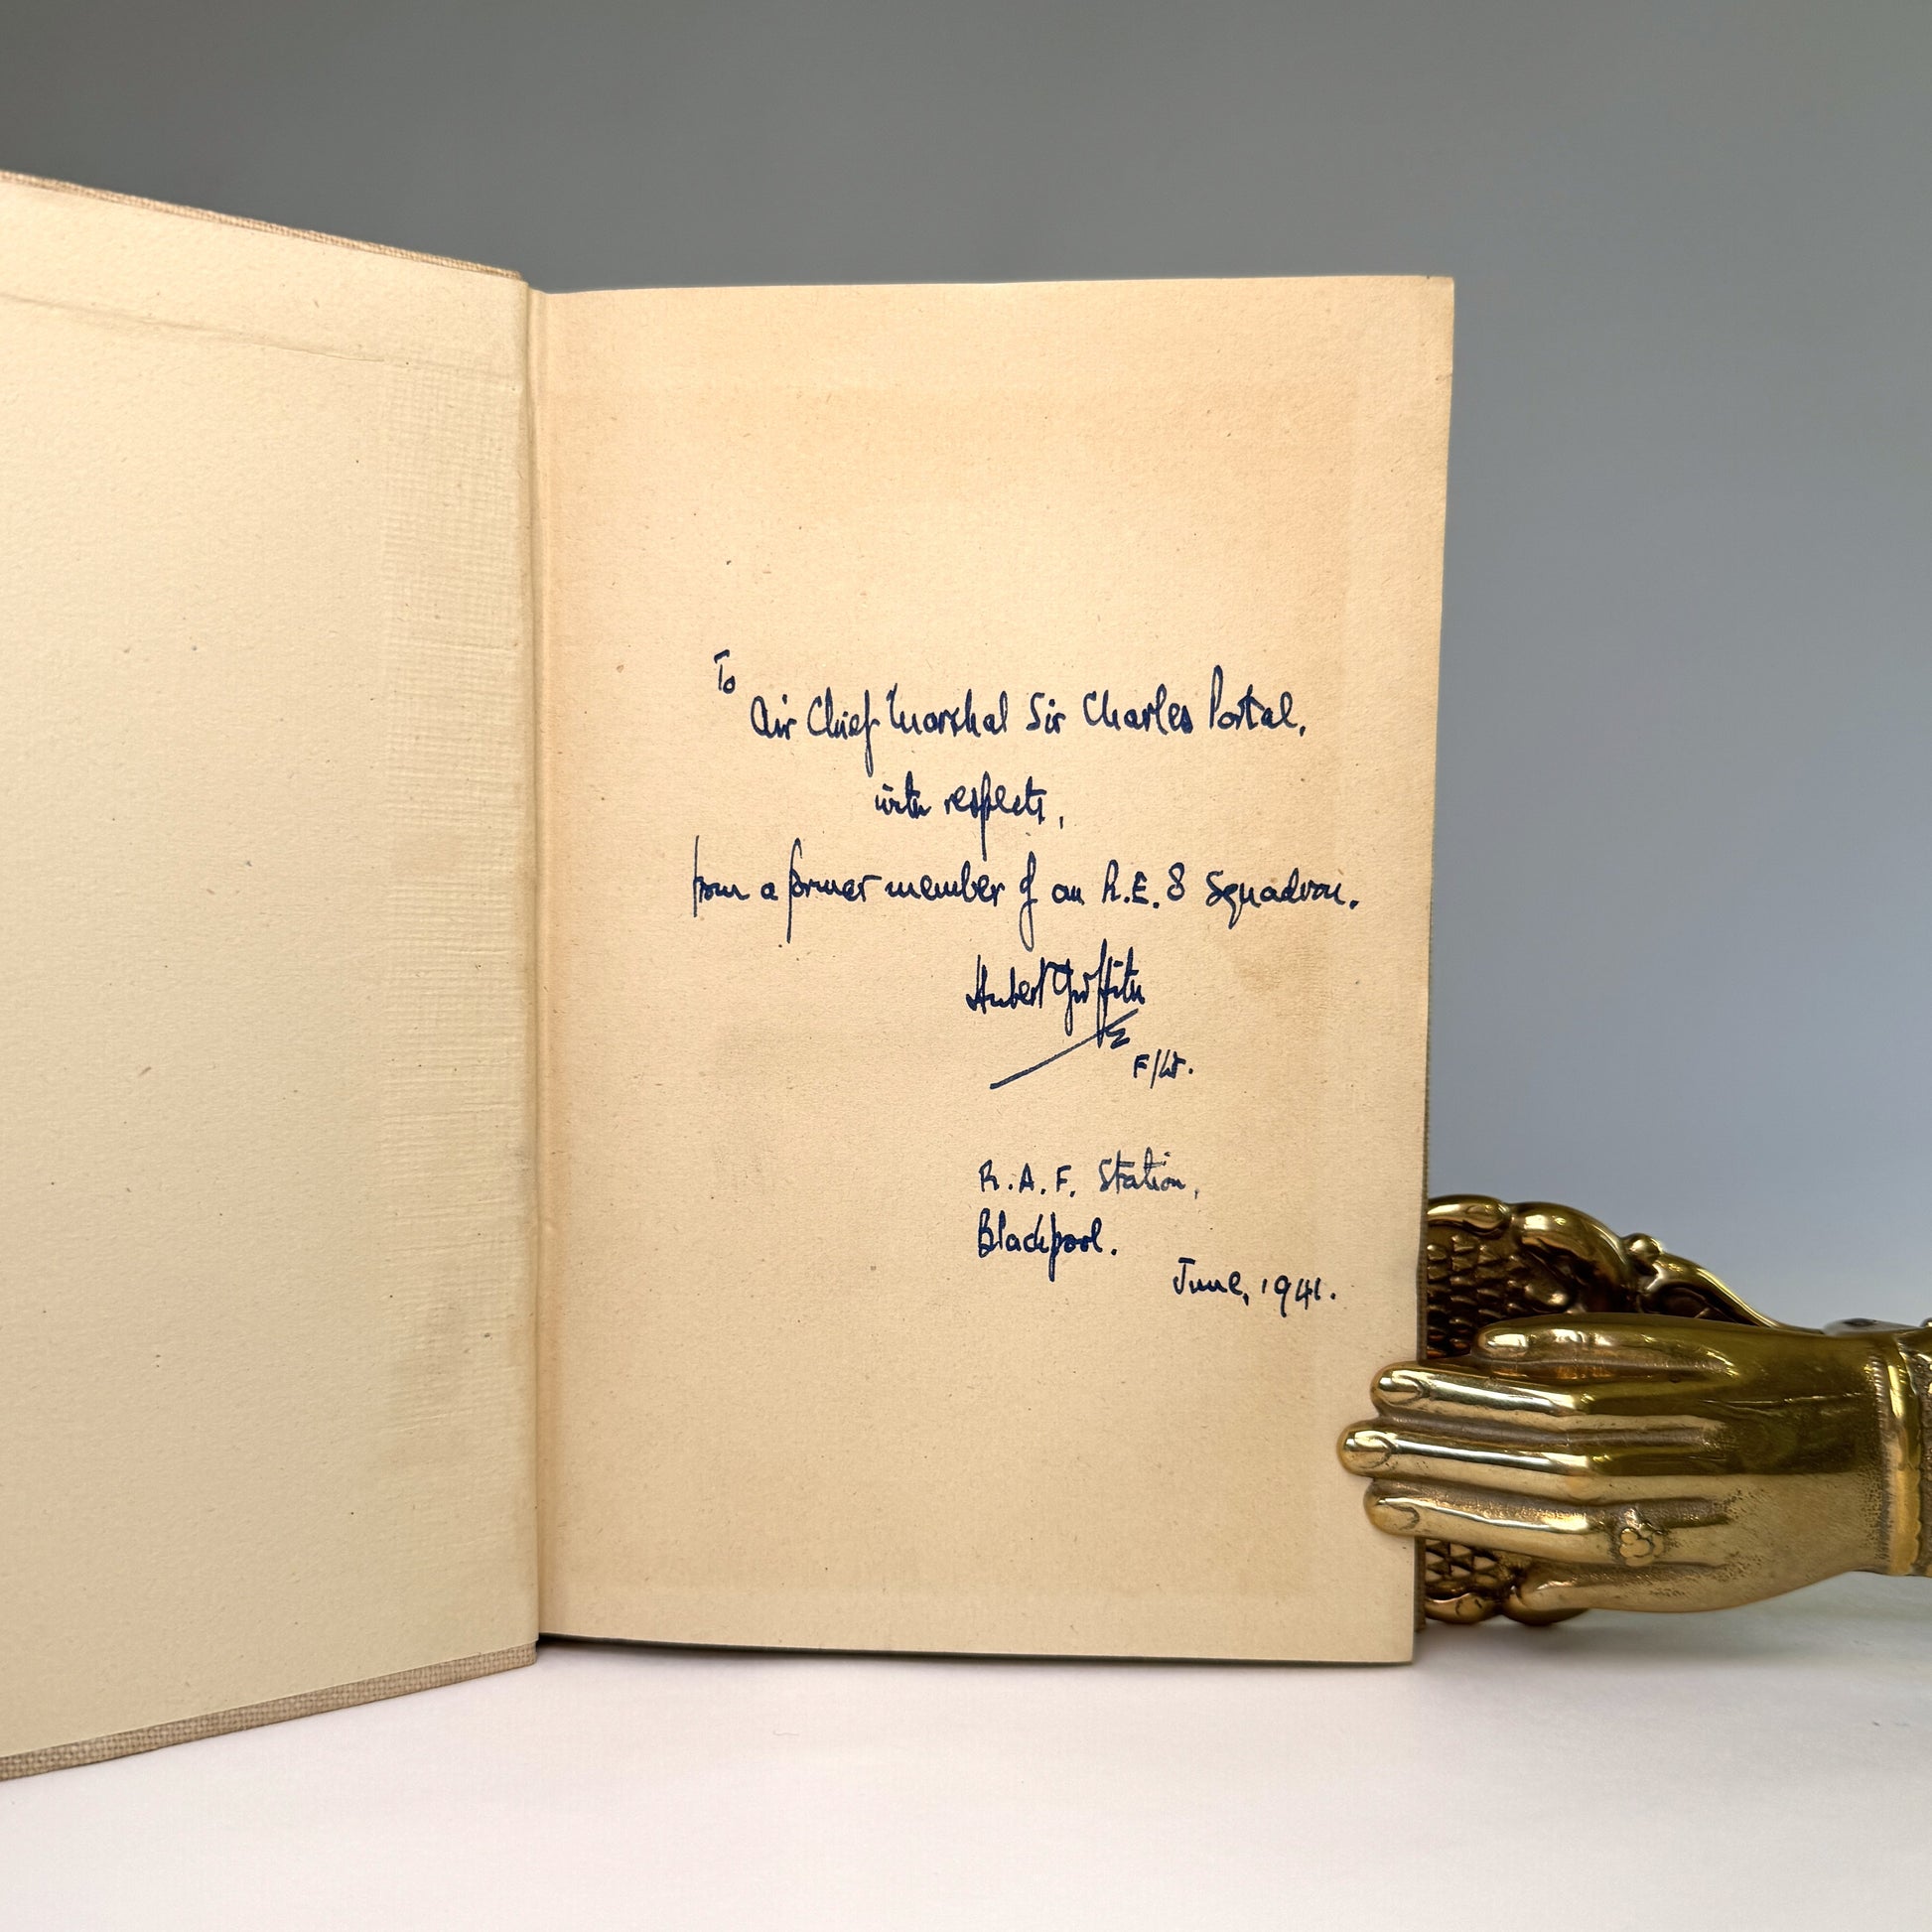 To
Air Chief Marshal Sir Charles Portal,
with respects,
from a former member of an R.E.8 Squadron.
Hubert Griffith
F/Lt.
R.A.F. Station,
Blackpool.
June, 1941.